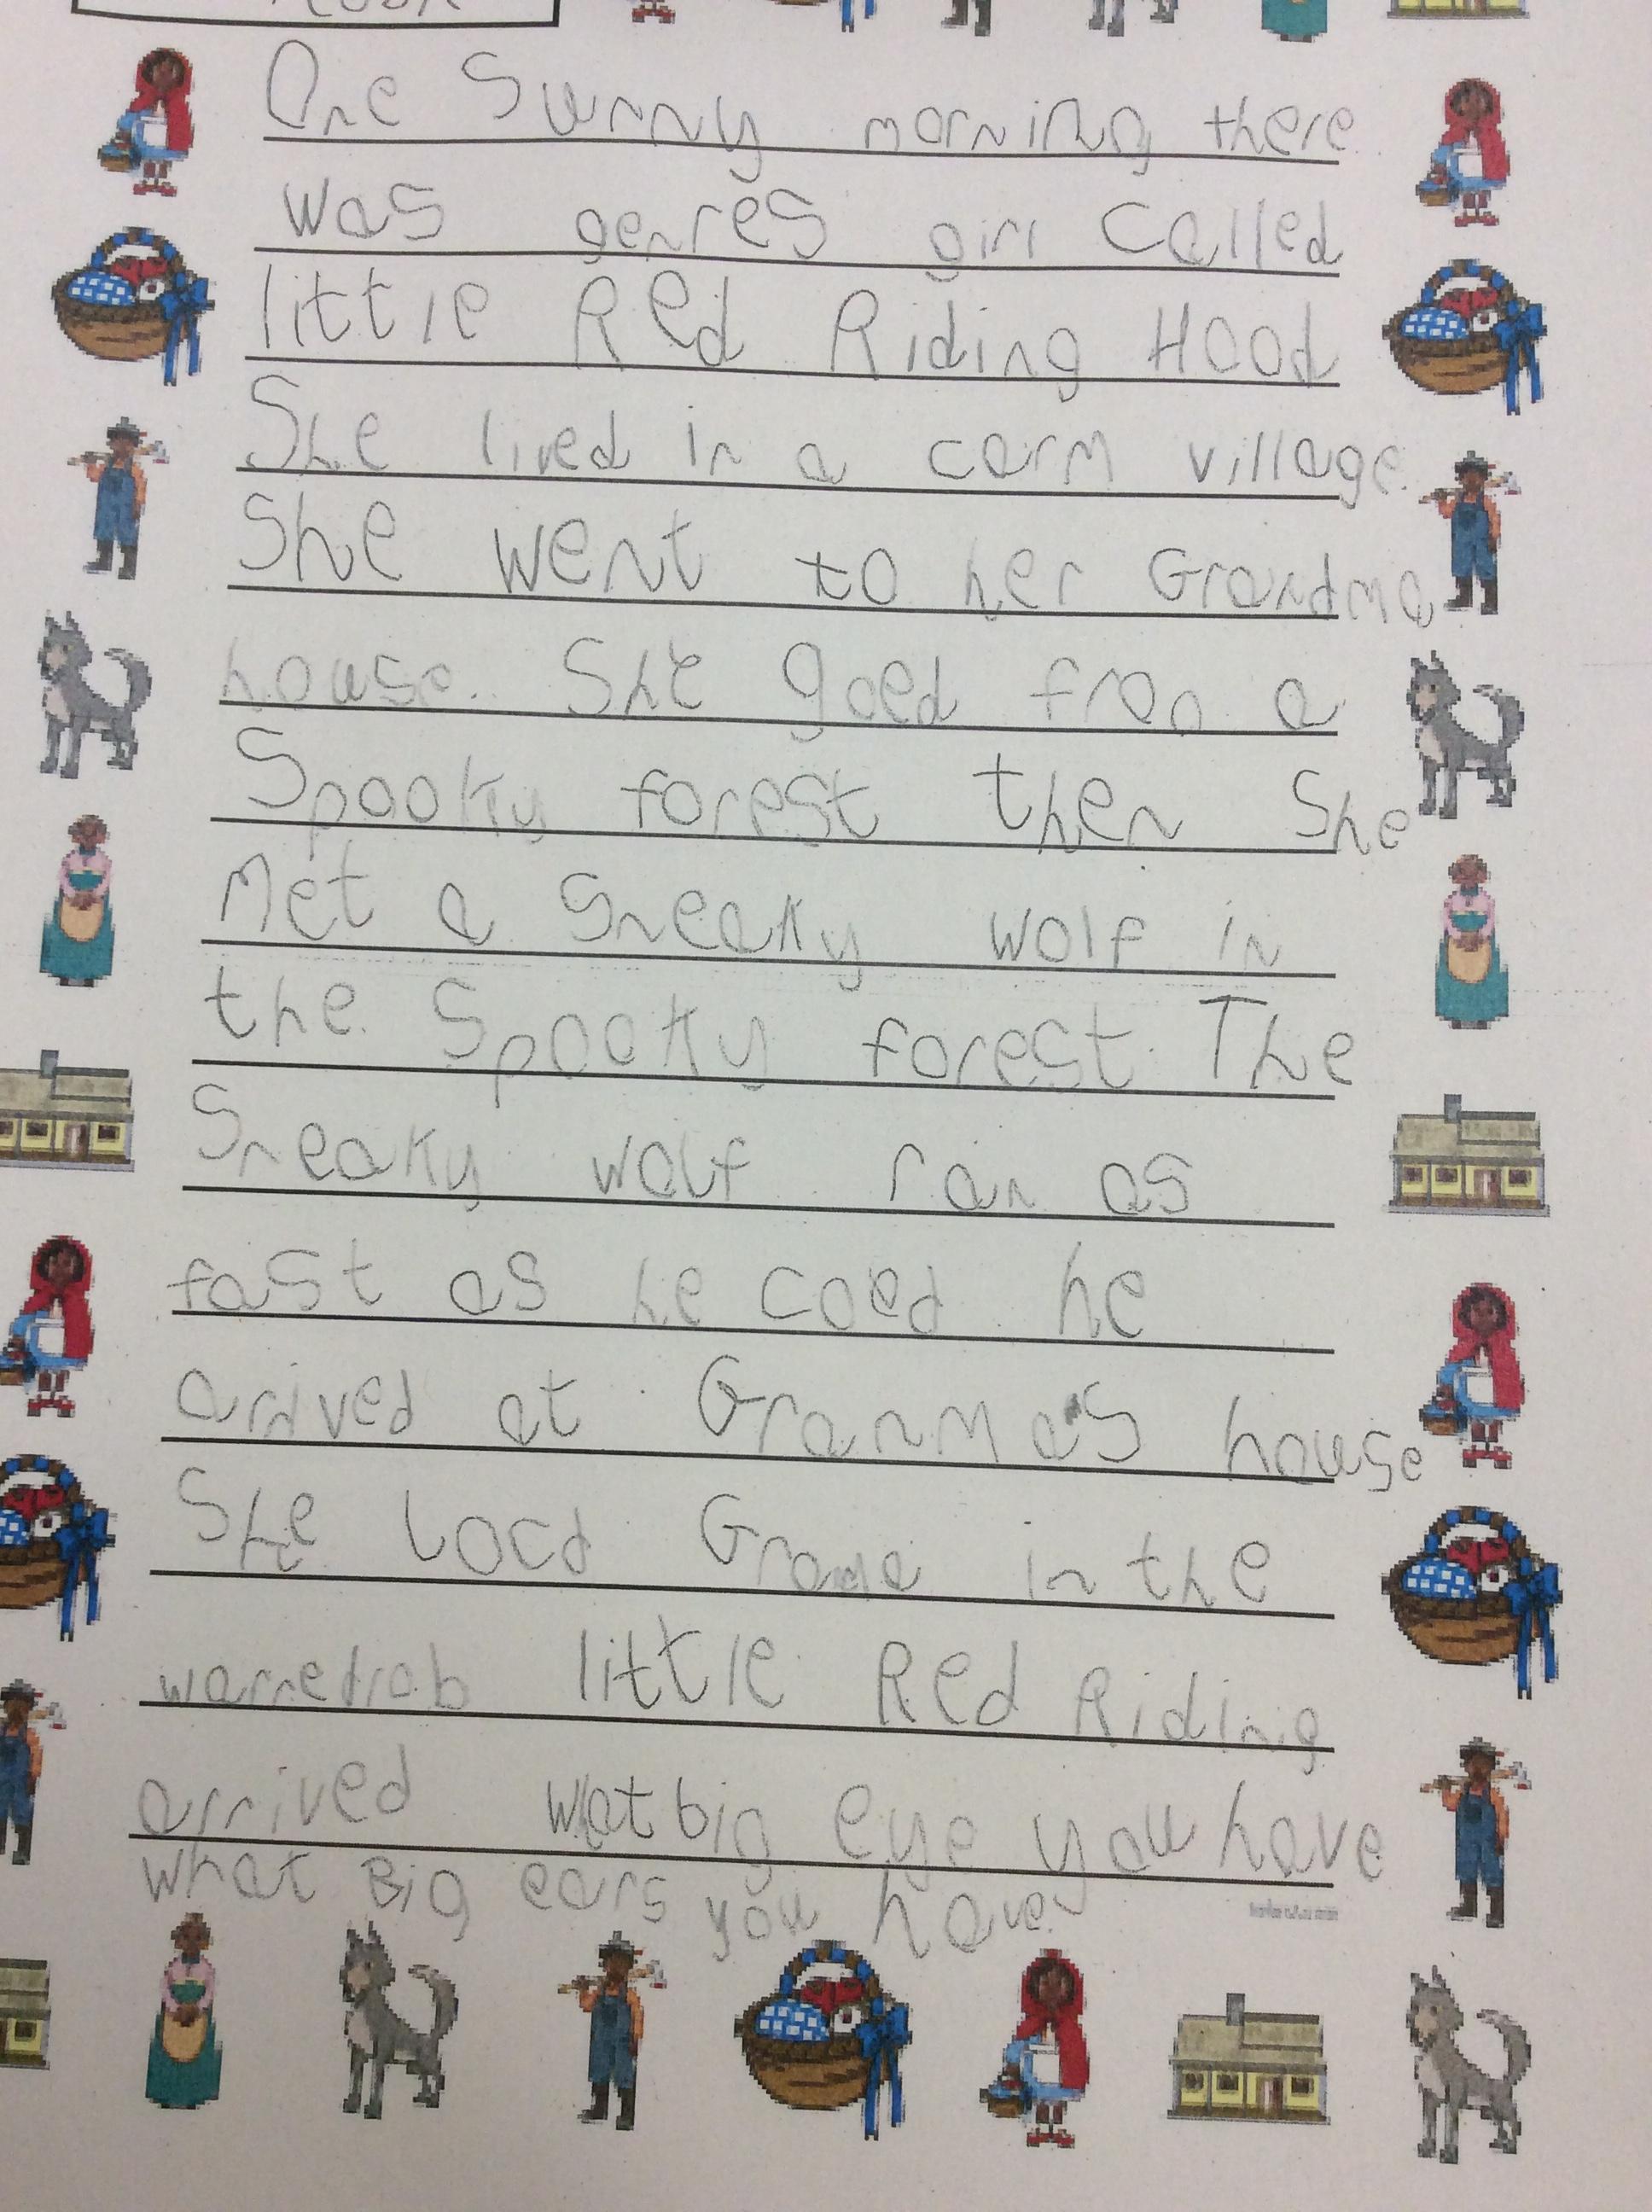 One Sunny morning there
was genres girl called
little Red Riding Hood
She lived in a carm village.
She went to her Grandma
house. She goed fron a
Spooky forest then She
Met a Sneaky wolf in
the Spooky forest. The
Sneaky wolf ran as
fast as he coed he
arrived at Granma's house
She locd in the
warredrob little Red Riding
arrived Wat big eye you have
what Big ears you have